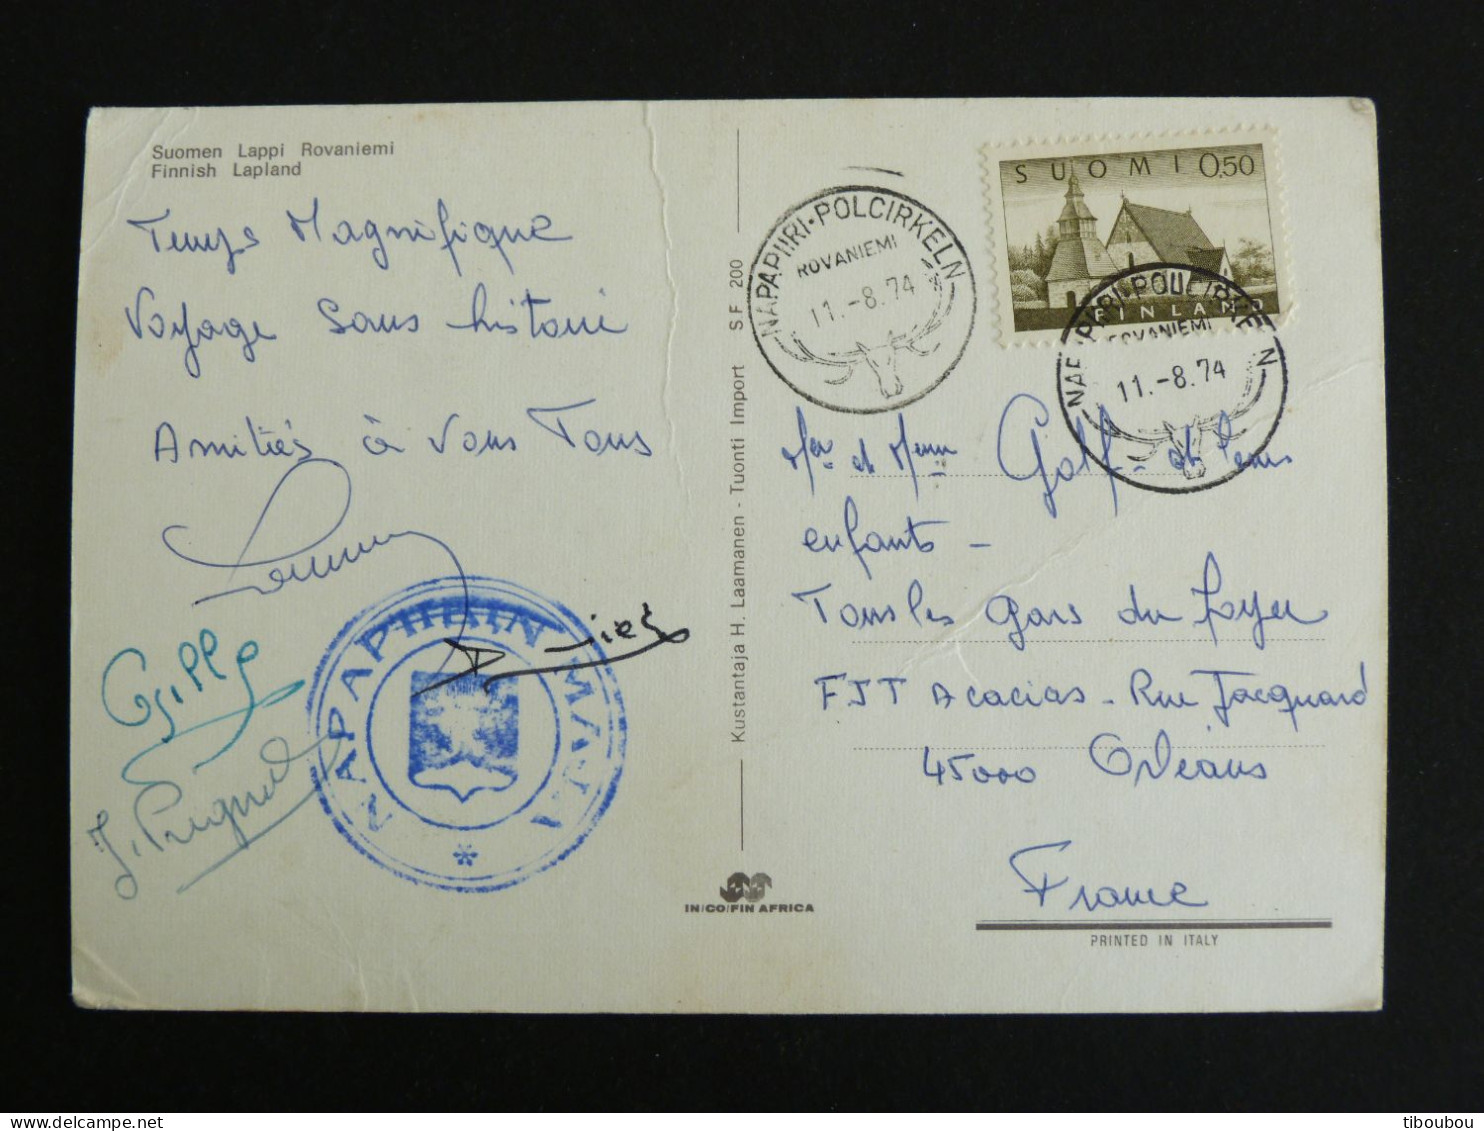 Suomen Lappi Rovaniemi
Finnish Lapland
Temps Magnifique
Voyage Sans histoire
Amitiés à Vous Tous
Gilles
J. Prignot
NAPAPIIRIN MAJA *
Kustantaja H. Laamanen - Tuonti Import SF 200
IN/CO/FIN AFRICA
NAPAPIIRI-POLCIRKELN
ROVANIEMI
11.-8.74
SUOMI 0,50
FINLAND
NAPAPIIRI-POLCIRKELN
ROVANIEMI
11.-8.74
et leurs
enfants -
Tous les gars du Foyer
FJT Acacias - Rue Jacquard
45000 Orléans
France
PRINTED IN ITALY
tiboubou